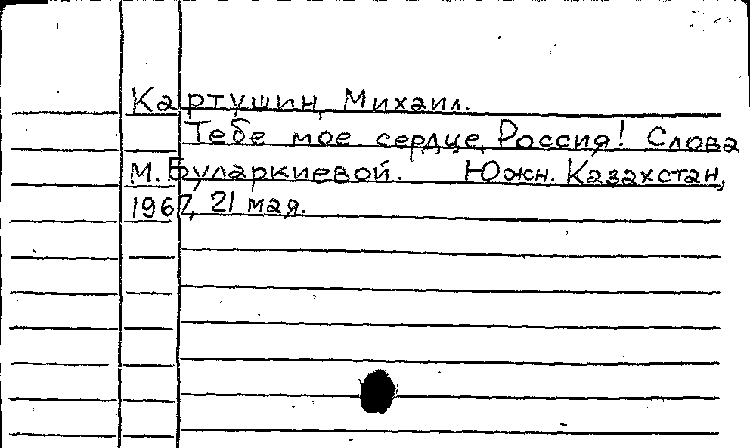 Картушин, Михаил.
Тебе мое сердце, Россия! Слова
М. Буларкиевой. Южн. Казахстан,
1967, 21 мая.